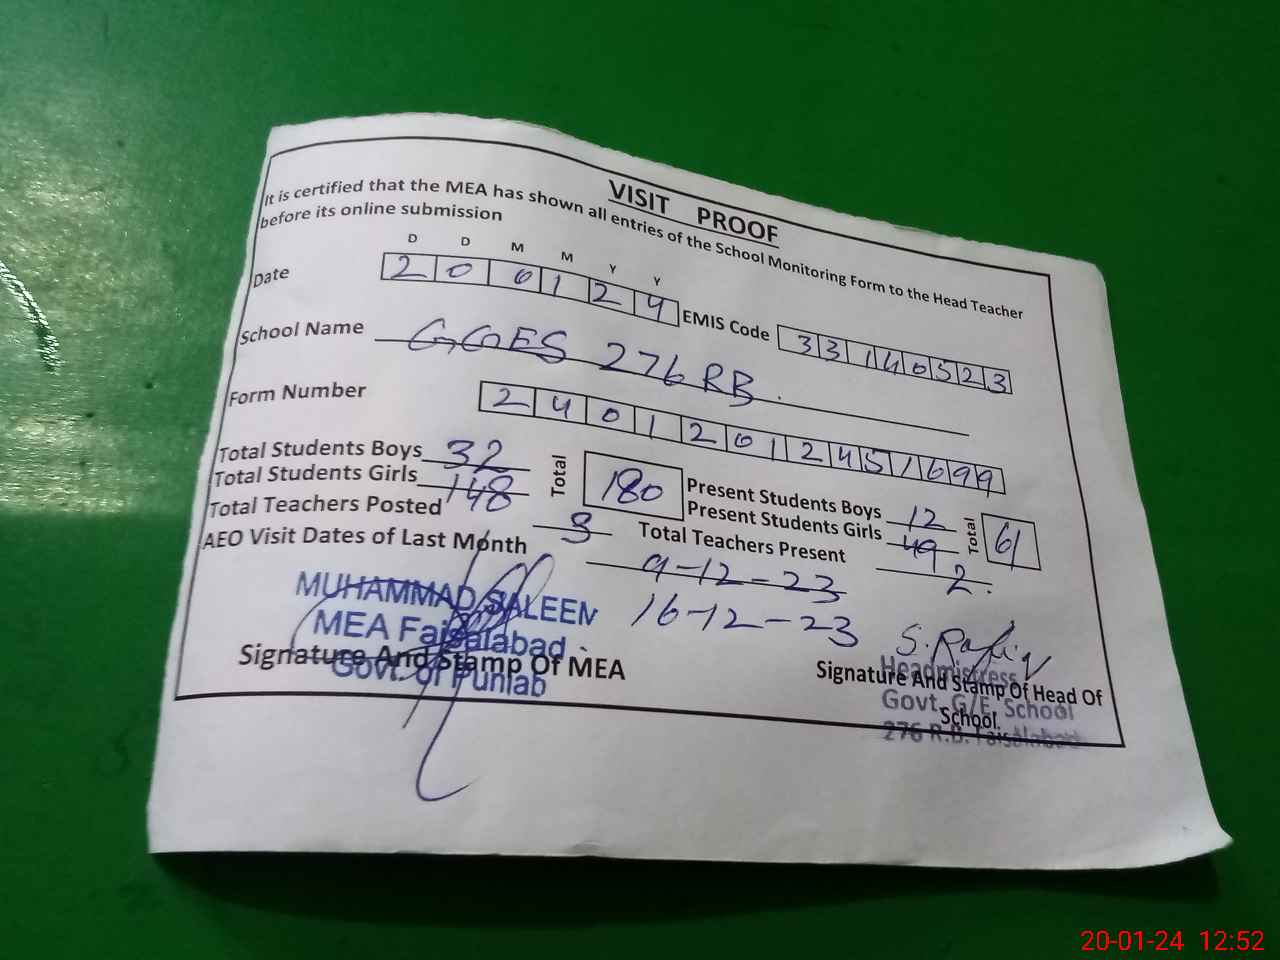 VISIT PROOF
It is certified that the MEA has shown all entries of the School Monitoring Form to the Head Teacher
before its online submission
D D M M Y Y
Date 2 0 0 1 2 4 EMIS Code 3 3 1 4 0 5 2 3
School Name GGES 276 RB.
Form Number 2 4 0 1 2 0 1 2 4 5 1 6 9 9
Total Students Boys 32 Total 180 Present Students Boys 12 Total 61
Total Students Girls 148 Present Students Girls 49
Total Teachers Posted 3 Total Teachers Present 2.
AEO Visit Dates of Last Month 9-12-23
16-12-23
MUHAMMAD SALEEN
MEA Faisalabad
Govt. of Punjab
Signature And Stamp Of MEA
S. Rafiq
Headmistress
Govt. G/E. School
276 R.B. Faisalabad
Signature And Stamp Of Head Of
School.
20-01-24 12:52